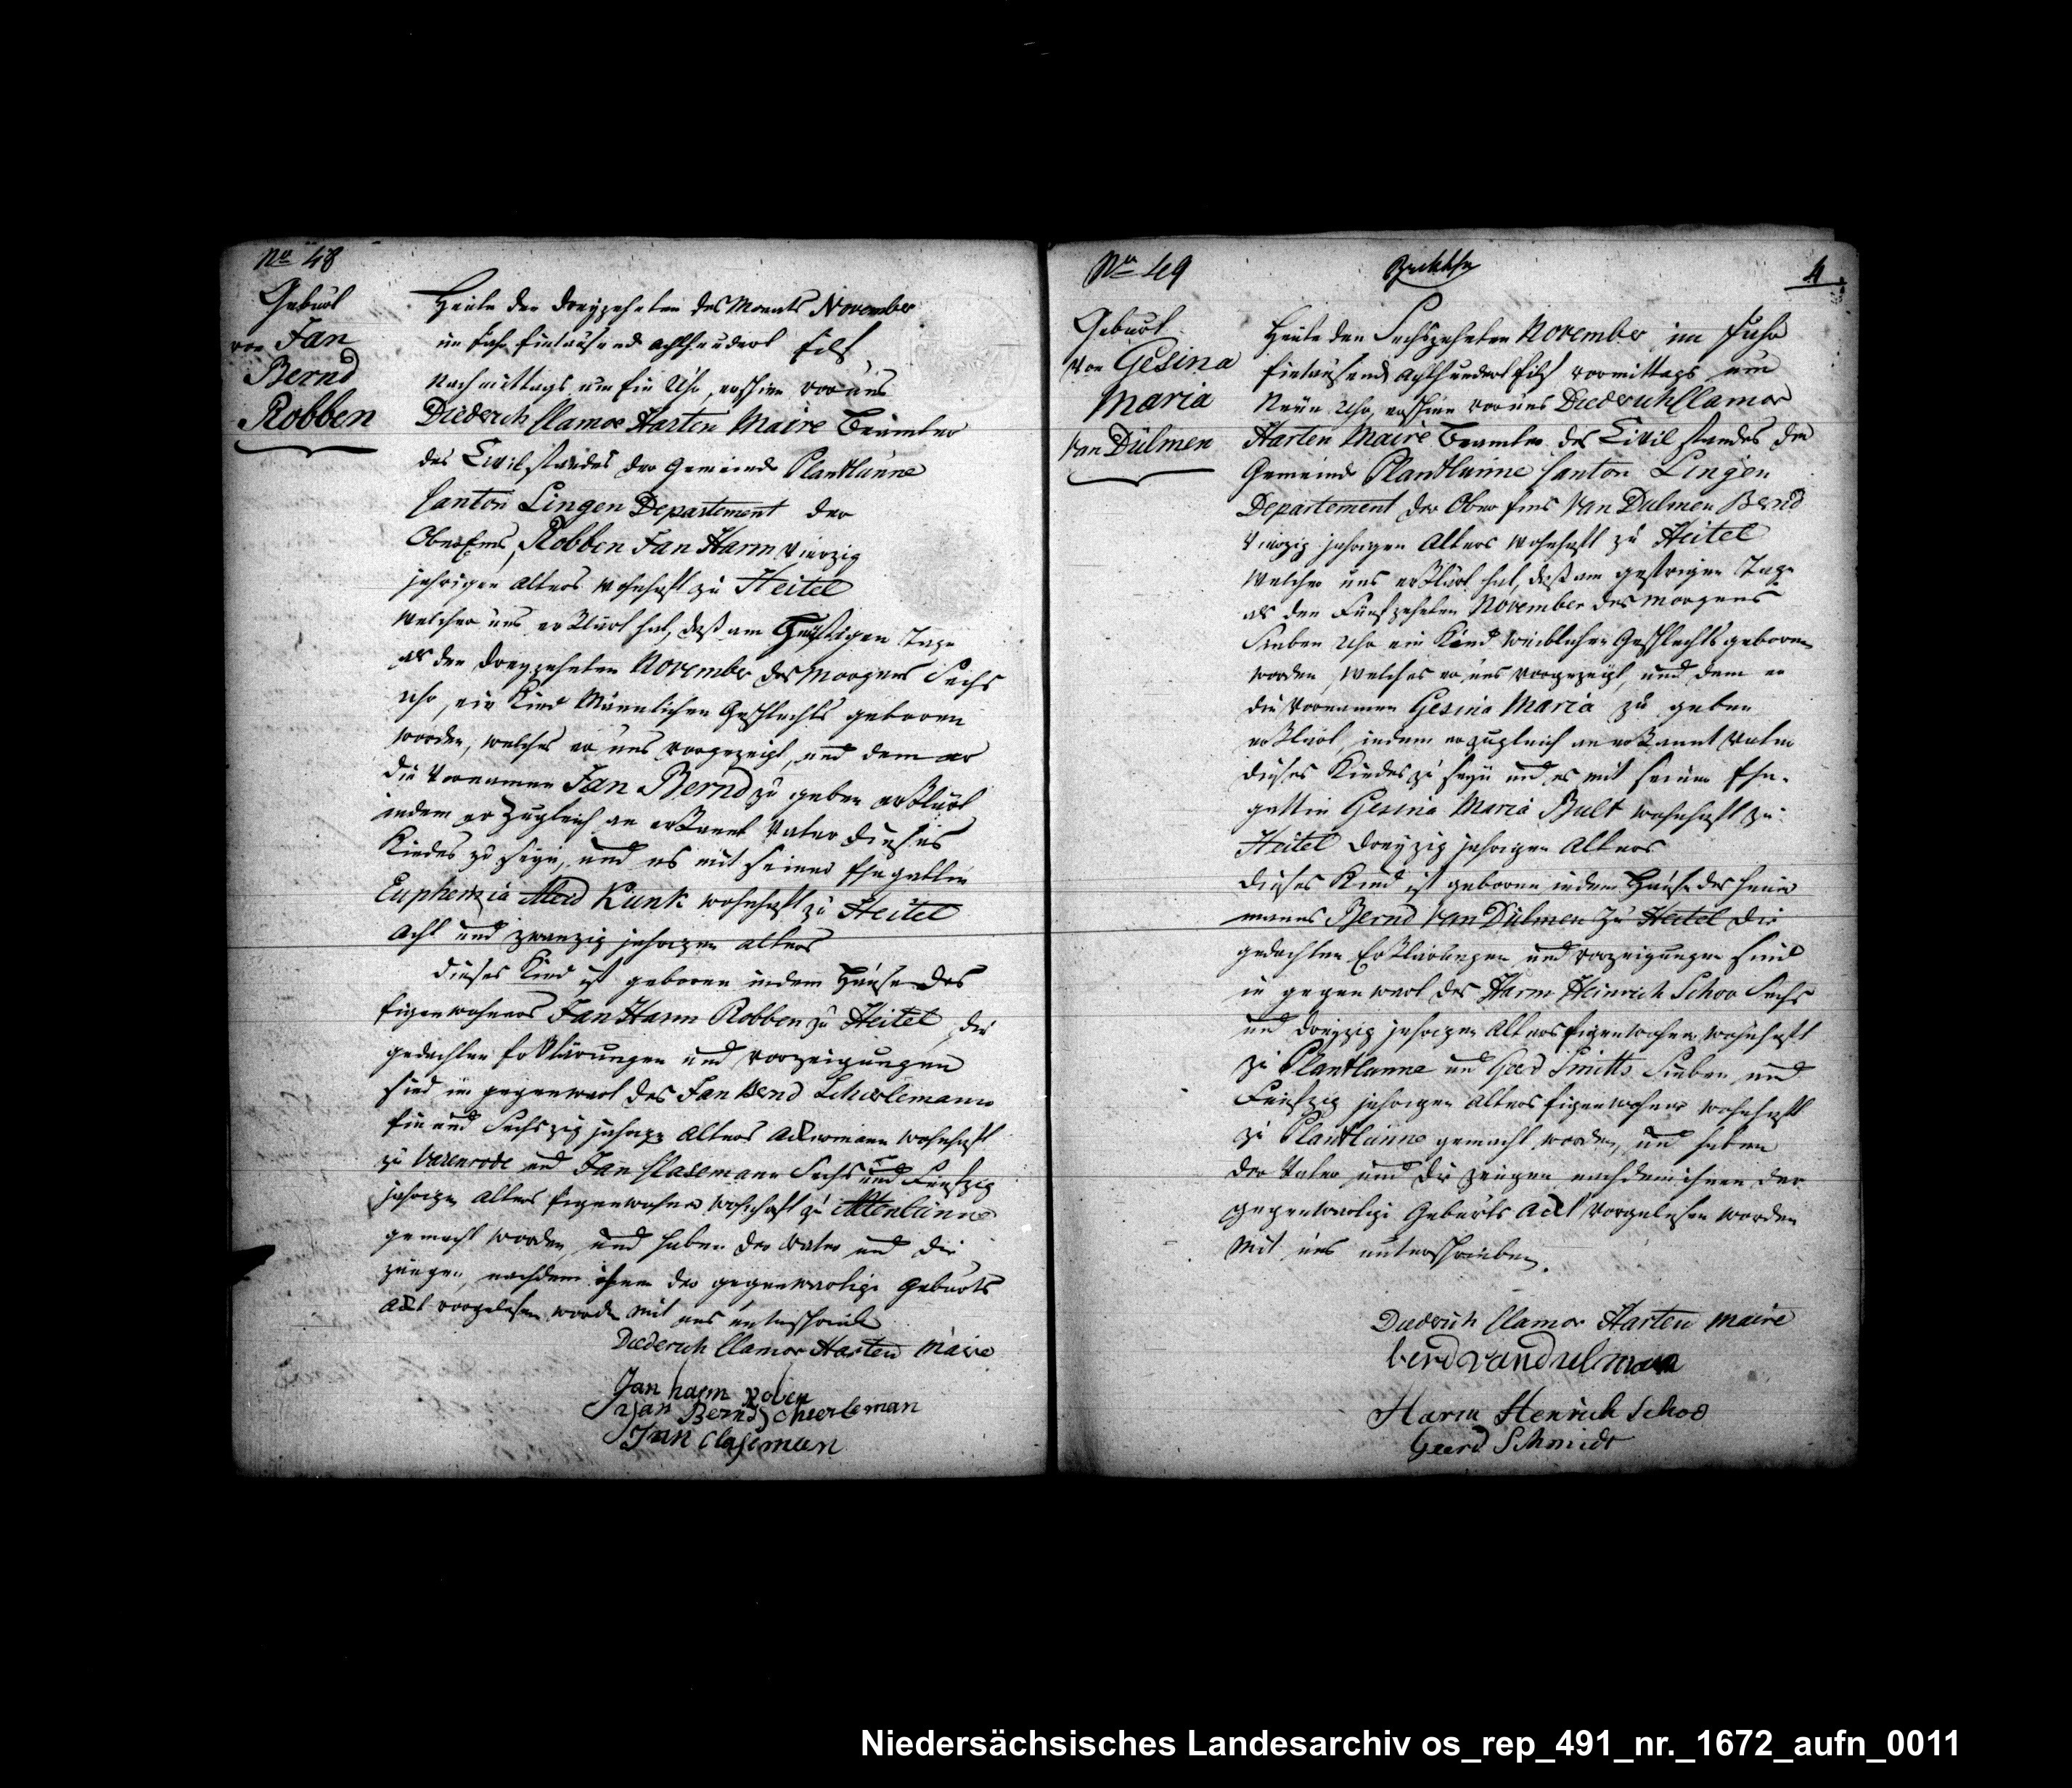 No 48
Geburt
von Jan
Bernd
Robben
Heute den dreyzehnten des Monats November
im Jahr Eintausend achthundert Eilf,
Nachmittags um Ein Uhr, erschien vor uns
Diederich Clamor Harten Maire Beamter
des Civilstandes der Gemeinde Plantlünne
Canton Lingen Departement der
OberEms, Robben Jan Harm Vierzig
jahrigen Alters wohnhaft zu Heitel
welcher uns erklärt hat, daß am Heutigen Tage
als den dreyzehnten November des Morgens Sechs
Uhr, ein Kind Männlichen Geschlechts geboren
worden, welches er uns vorgezeigt, und dem er
die Vornamen Jan Bernd zu geben erklärt
indem er Zugleich anerkannt Vater dieses
Kindes zu seyn, und es mit seiner Ehegattin
Euphemia Aleid Kunk wohnhaft zu Heitel
Acht und zwanzig jahrigen alters
dieses Kind ist geboren in dem Hause des
Eigenwohners Jan Harm Robben zu Heitel, die
gedachten Erklärungen und Vorzeigungen
sind in gegenwart des Jan Bernd Scherlemann
Ein und Sechszig jahrige Alters Ackermann wohnhaft
zu Varenrode und Jan Clasemann Sechs und Funfzig
jahrigen Alters Eigenwohner wohnhaft zu Altenlünne
gemacht worden, und haben der Vater und die
Zeugen, nachdem ihnen der gegenwartige Geburts
Act vorgelesen worden mit uns unterschrieben
Diederich Clamor Harten Maire
Jan harm Roben
Jan Bernd Scheerleman
Jan Claseman
No 49
4
Geburt
von Gesina
Maria
Van Dülmen
Heute den Sechszehnten November im Jahr
Eintausend Achthundert Eilf vormittags um
Neun Uhr, erschien vor uns Diederich Clamor
Harten Maire Beamter des Civilstandes der
Gemeinde Plantlünne Canton Lingen
Departement der Ober Ems Van Dulmen Bernd
Vierzig jahrigen Alters wohnhaft zu Heitel
Welcher uns erklärt hat, daß am gestrigen Tage
als den Funfzehnten November des Morgens
Sieben Uhr ein Kind weiblichen Geschlechts geboren
worden, welches er uns vorgezeigt, und dem er
die Vornamen Gesina Maria zu geben
erklärt, indem er zugleich anerkannt Vater
dieses Kindes zu seyn und es mit seiner Ehe-
gattin Gesina Maria Bult wohnhaft zu
Heitel dreyzig jahrigen Alters
dieses Kind ist geboren in dem Hause des Heuer
manns Bernd Van Dülmen zu Heitel die
gedachten Erklärungen und Vorzeigungen sind
in gegenwart des Harm Heinrich Schoo Sechs
und dreyzig jahrigen Alters Eigenwohner wohnhaft
zu Plantlünne und Gerd Smitts Sieben und
Funfzig jahrigen Alters Eigenwohner wohnhaft
zu Plantlünne gemacht worden, und haben
der Vater und die Zeugen nachdem ihnen der
gegenwartige Geburts Act vorgelesen worden
mit uns unterschrieben.
Diederich Clamor Harten Maire
berd van dulmen
Harm Henrich Schoo
Geerd Schmidt
Niedersächsisches Landesarchiv os_rep_491_nr._1672_aufn_0011